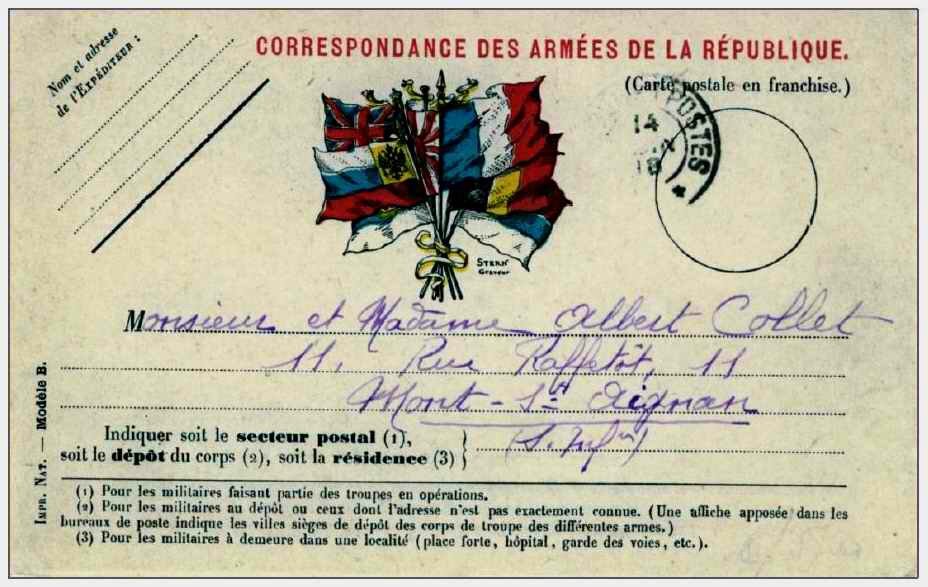 Nom et adresse
de l'Expéditeur :
CORRESPONDANCE DES ARMÉES DE LA RÉPUBLIQUE.
(Carte postale en franchise.)
POSTES
14
18
*
STERN
Graveur
Monsieur et Madame Albert Collet
11, Rue Raffetôt, 11
Mont-St Aignan
(S. Infre)
Indiquer soit le secteur postal (1),
soit le dépôt du corps (2), soit la résidence (3)
Impr. Nat. — Modèle B.
(1) Pour les militaires faisant partie des troupes en opérations.
(2) Pour les militaires au dépôt ou ceux dont l'adresse n'est pas exactement connue. (Une affiche apposée dans les
bureaux de poste indique les villes sièges de dépôt des corps de troupe des différentes armes.)
(3) Pour les militaires à demeure dans une localité (place forte, hôpital, garde des voies, etc.).